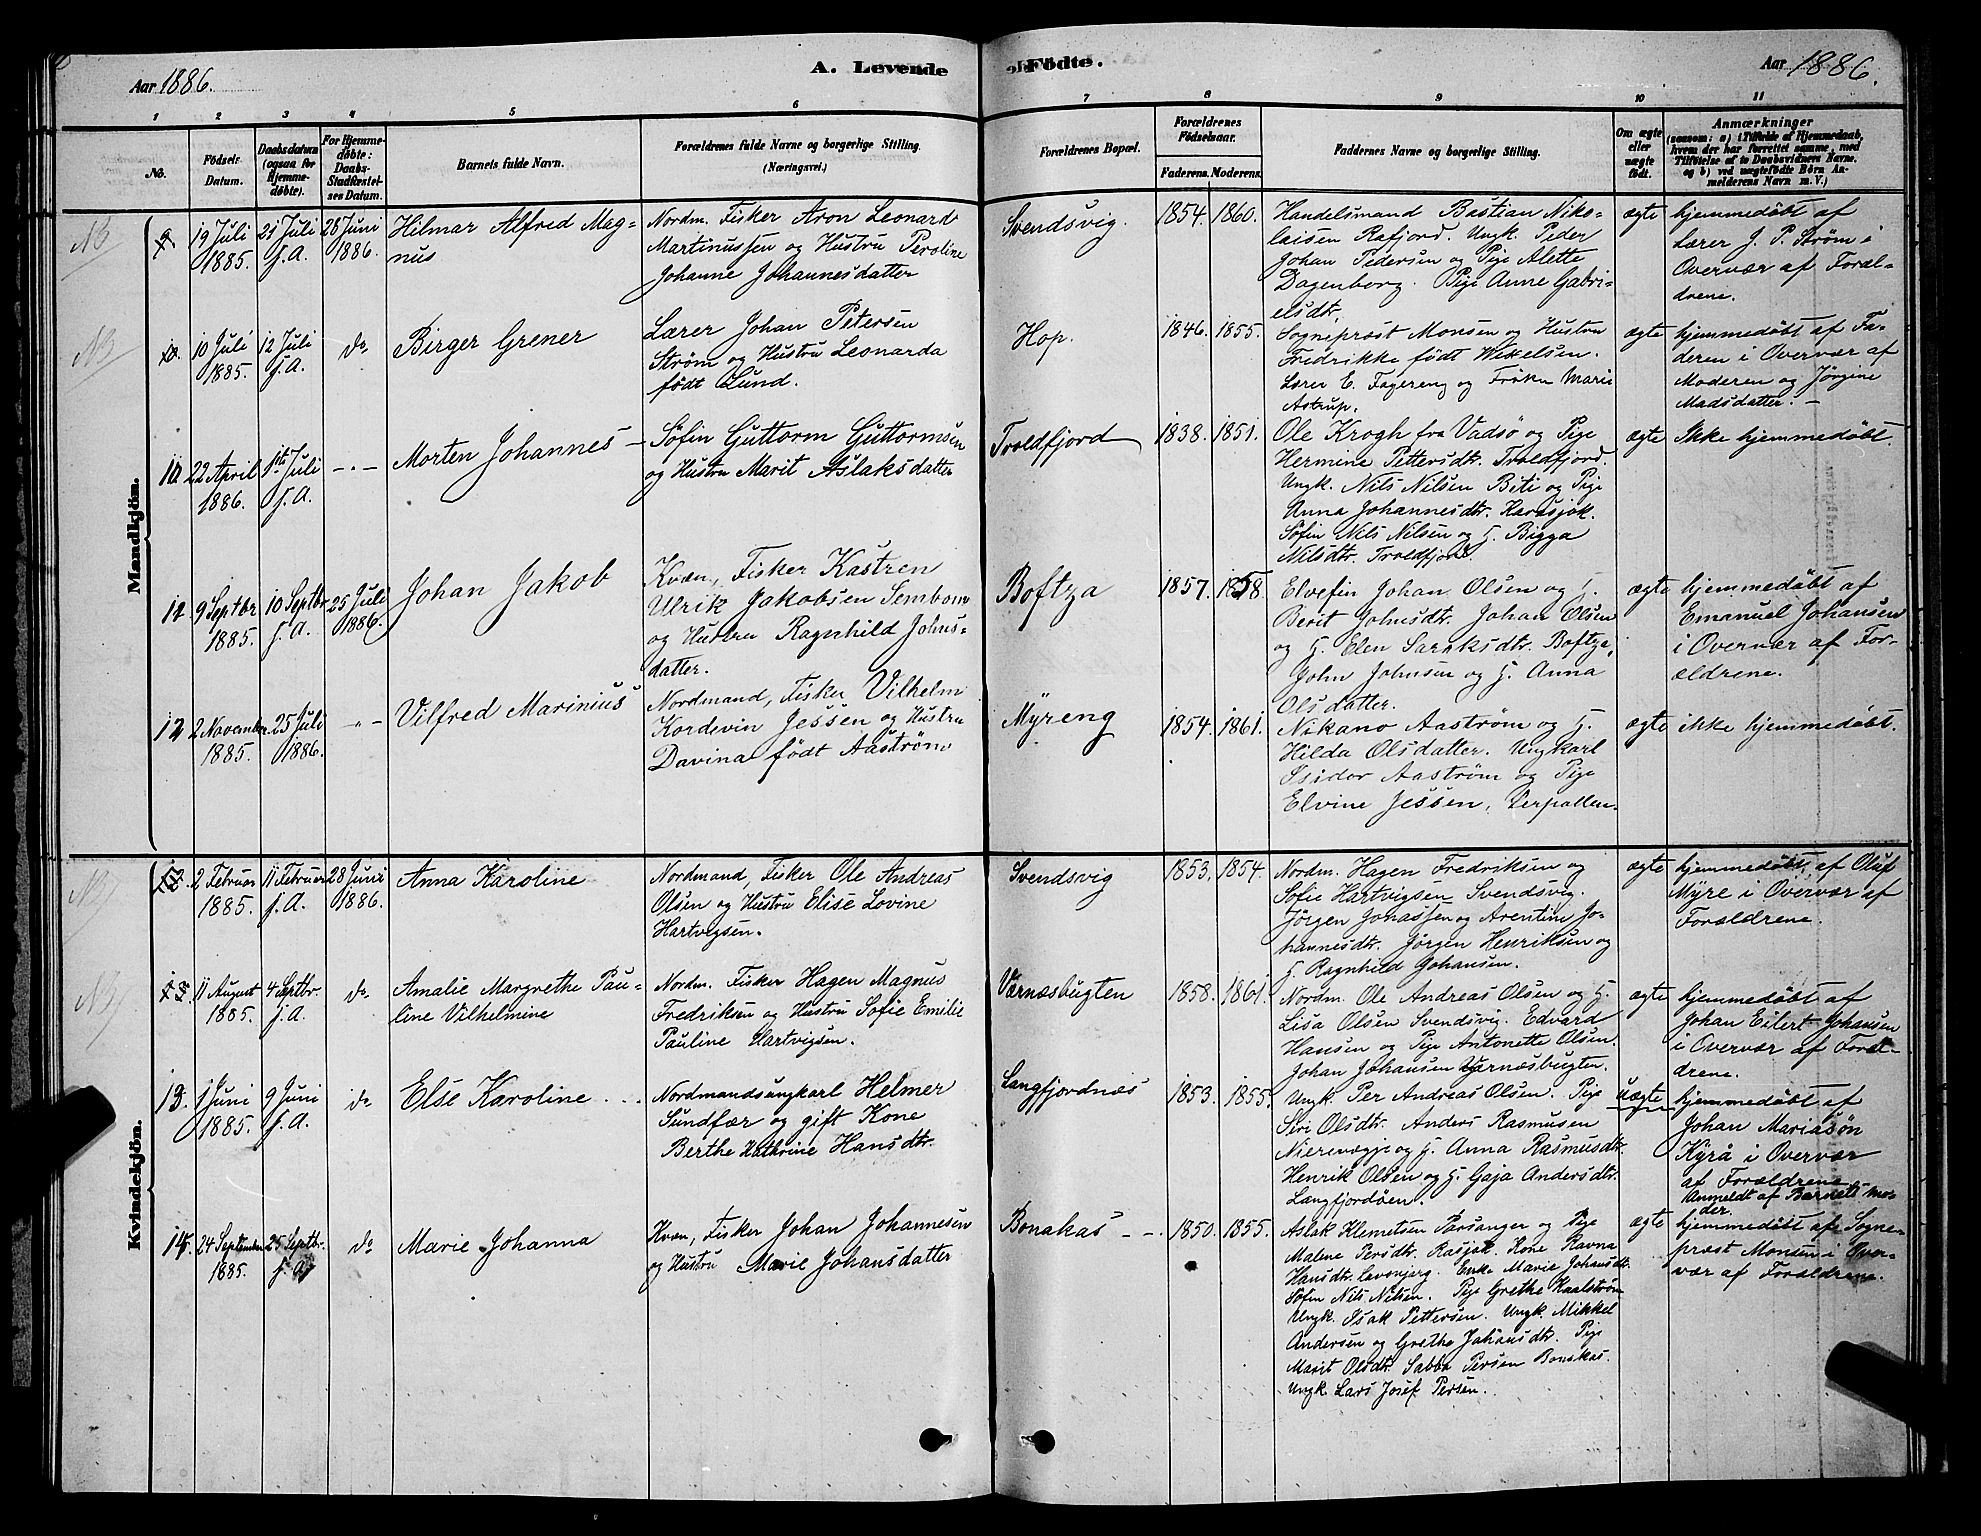 Aar 1886.
A. Levende
Födte.
Aar 1886.
1 2 3 4 5 6 7 8 9 10 11
No.
Födsels-
Datum.
Daabsdatum
(ogsaa for
Hjemme-
döbte).
For Hjemme-
döbte:
Daabs-
Stadfæstel-
ses Datum.
Barnets fulde Navn.
Forældrenes fulde Navne og borgerlige Stilling.
(Næringsvei.)
Forældrenes Bopæl.
Forældrenes
Födselsaar.
Faderens. Moderens.
Faddernes Navne og borgerlige Stilling.
Om ægte
eller
uægte
födt.
Anmærkninger
(saasom: a) i Tilfælde af Hjemmedaab,
hvem der har forrettet samme, med
Tilföielse af to Daabsvidners Navne,
og b) ved uægtefödte Börn An-
melderens Navn m. V.)
Mandkjön.
NB
9
19 Juli
1885.
21 Juli
s. A.
26 Juni
1886.
Hilmar Alfred Mag-
nus
Nordm. Fisker Aron Leonard
Martinussen og Hustru Peroline
Johanne Johannesdatter
Svendsvig.
1854. 1860.
Handelsmand Bastian Niko-
laisen Rafjord. Ungk. Peder
Johan Pedersen og Pige Alette
Dagenborg. Pige Anne Gabri-
elsdt.
ægte
hjemmedøbt af
Lærer J. P. Strøm i
Overvær af Foræl-
drene.
NB
10.
10 Juli
1885.
12 Juli
s. A.
do
Birger Grener
Lærer Johan Petersen
Strøm og Hustru Leonarda
født Lund.
Hop.
1846. 1855.
Sognepræst Monsen og Hustru
Fredrikke født Wexelsen.
Lærer E. Fagereng og Frøken Marie
Astrup.
ægte
hjemmedøbt af Fa-
deren i Overvær af
Moderen og Jørgine
Madsdatter. —
22 April
1886.
1ste Juli
s. A.
-.-
Morten Johannes
Søfin Guttorm Guttormsen
og Hustru Marit Aslaksdatter
Troldfjord
1838. 1851.
Ole Krogh fra Vadsø og Pige
Hermine Pettersdtr. Troldfjord.
Ungk. Nils Nilsen Biti og Pige
Anna Johannesdtr. Karasjok.
Søfin Nils Nilsen og H. Bigga
Nilsdtr. Troldfjord
ægte
Ikke hjemmedøbt.
9 Septbr
1885.
10 Septbr.
s. A.
25 Juli
1886.
Johan Jakob
Kvæn, Fisker Kastren
Ulrik Jakobsen Sembom
og Hustru Ragnhild Johns-
datter.
Boftza
1857. 1858.
Elvefin Johan Olsen og H.
Berit Johnsdtr. Johan Olsen
og H. Elen Saraksdtr. Boftza,
John Johnsen og H. Anna
Olsdatter.
ægte
hjemmedøbt af
Emanuel Johansen
i Overvær af For-
ældrene.
2 November
1885.
25 Juli
1886.
-"-
Vilfred Marinius
Nordmand, Fisker Vilhelm
Kordevin Jessen og Hustru
Davina født Aastrøm
Myreng
1854. 1861.
Nikano Aastrøm og H.
Hilda Olsdatter. Ungkarl
Isidor Aastrøm og Pige
Elvine Jessen, Lerpollen.
ægte
ikke hjemmedøbt.
Kvindekjön.
NB
2 Februar
1885.
11 Februar
s. A.
28 Juni
1886.
Anna Karoline
Nordmand, Fisker Ole Andreas
Olsen og Hustru Elise Lovine
Hartvigsen.
Svendsvig
1853. 1854.
Nordm. Hagen Fredriksen og
Sofie Hartvigsen Svendsvig.
Jørgen Jonassen og Arentine Jo-
hannesdtr. Jørgen Henriksen og
H. Ragnhild Johansen.
ægte
hjemmedøbt af Oluf
Myre i Overvær af
Forældrene.
NB
11 August
1885.
4 Septbr.
s. A.
do
Amalie Margrethe Pau-
line Vilhelmine
Nordm. Fisker Hagen Magnus
Fredriksen og Hustru Sofie Emilie
Pauline Hartvigsen.
Værnæsbugten
1858. 1861.
Nordm. Ole Andreas Olsen og H.
Lisa Olsen Svendsvig. Edvard
Hansen og Pige Antonette Olsen.
Johan Johansen Værnæsbugten.
ægte
hjemmedøbt af
Johan Eilert Johansen
i Overvær af Foræl-
drene.
13.
1 Juni
1885.
9 Juni
s. A.
do
Else Karoline
Nordmandsungkarl Helmer
Sundfær og gift Kone
Berthe Kathrine Hansdtr.
Langfjordnæs
1853. 1855.
Ungk. Per Andreas Olsen. Pige
Siri Olsdtr. Anders Rasmusen
Nierevægje og H. Anna Rasmusdtr.
Henrik Olsen og H. Gaja Andersdtr.
Langfjordøen.
uægte
hjemmedøbt af
Johan Mariasøn
Kyrå i Overvær
af Forældrene.
Anmeldt af Barnets Mo-
der.
24 September
1885.
25 Septbr.
s. A.
do
Marie Johanna
Kvæn, Fisker Johan Johannesen
og Hustru Marie Johansdatter
Bonakas
1850. 1855.
Aslak Klemetsen Porsanger og Pige
Malene Persdtr. Rasjok. Kone Ravna
Hansdtr. Enke Marie Johansdtr.
Søfin Nils Nilsen. Pige Grethe Kaalstrøm
Ungk. Isak Pettersen. Ungk. Mikkel
Andersen og Grethe Johansdtr. Pige
Marit Olsdtr. Sabba Persen Bonakas.
Ungk. Lars Josef Persen.
ægte
hjemmedøbt af Sogne-
præst Monsen i Over-
vær af Forældrene.